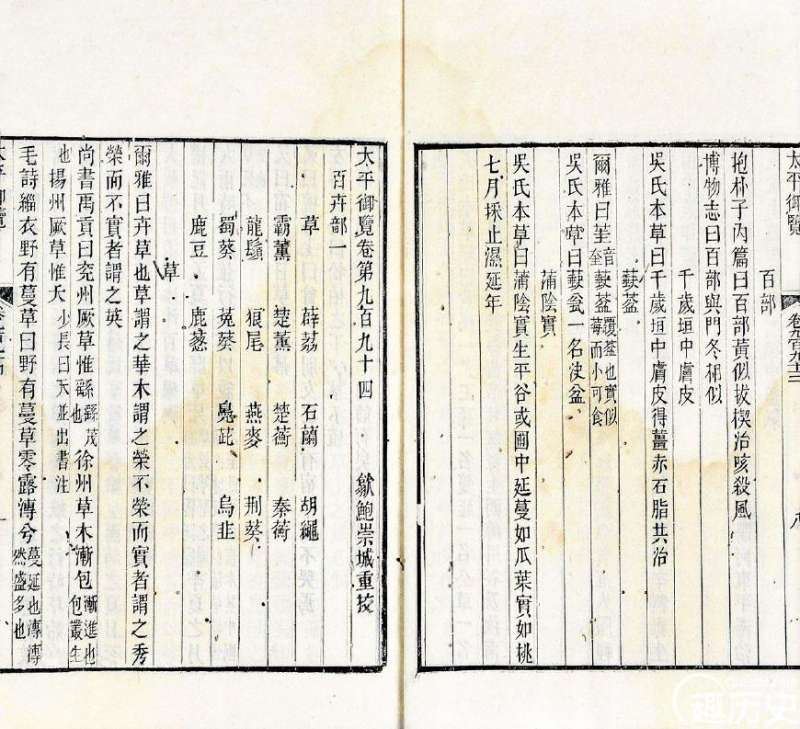 太平御覽
百部
抱朴子內篇曰百部黃似拔楔治咳殺風
博物志曰百部與門冬相似
千歲垣中膚皮
吳氏本草曰千歲垣中膚皮得薑赤石脂共治
蒛葐
爾雅曰茥音奎蒛葐覆葐也實似莓而小可食
吳氏本草曰蒛盆一名決盆
蒲陰實
吳氏本草曰蒲陰實生平谷或圃中延蔓如瓜葉實如桃
七月採止溫延年
太平御覽卷第九百九十四
歙鮑崇城重校
百卉部一
草 薜荔 石蘭 胡繩
霸薰 楚薰 楚蘅 秦蘅
龍鬚 狼尾 燕麥 荆葵
蜀葵 菟葵 鳧茈 烏韭
鹿豆 鹿蔥
草
爾雅曰卉草也草謂之華木謂之榮不榮而實者謂之秀
榮而不實者謂之英
尚書禹貢曰兖州厥草惟繇繇茂也徐州草木漸包漸進也包叢生
也揚州厥草惟夭少長曰夭並出書注
毛詩緇衣野有蔓草曰野有蔓草零露漙兮蔓延也漙漙然盛多也
太平御覽
趣历史